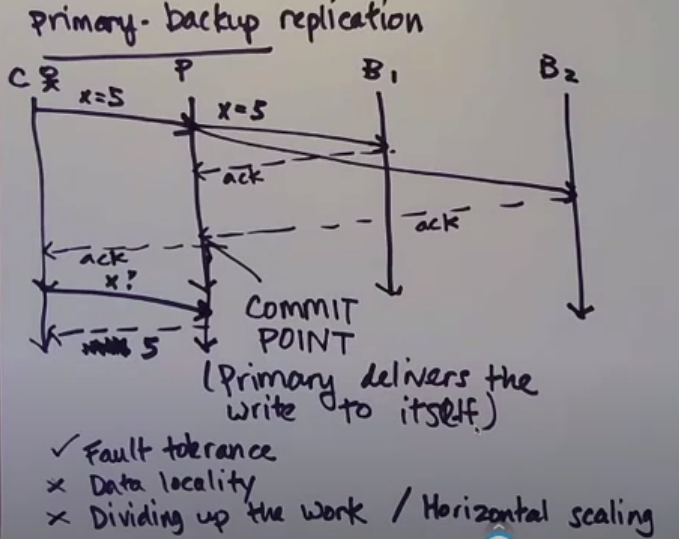 primary-backup replication
C P B1 B2
x=5 x=5
ack
ack
ack
x?
COMMIT
POINT
5
(Primary delivers the
write to itself.)
✓ Fault tolerance
× Data locality
× Dividing up the work / Horizontal scaling